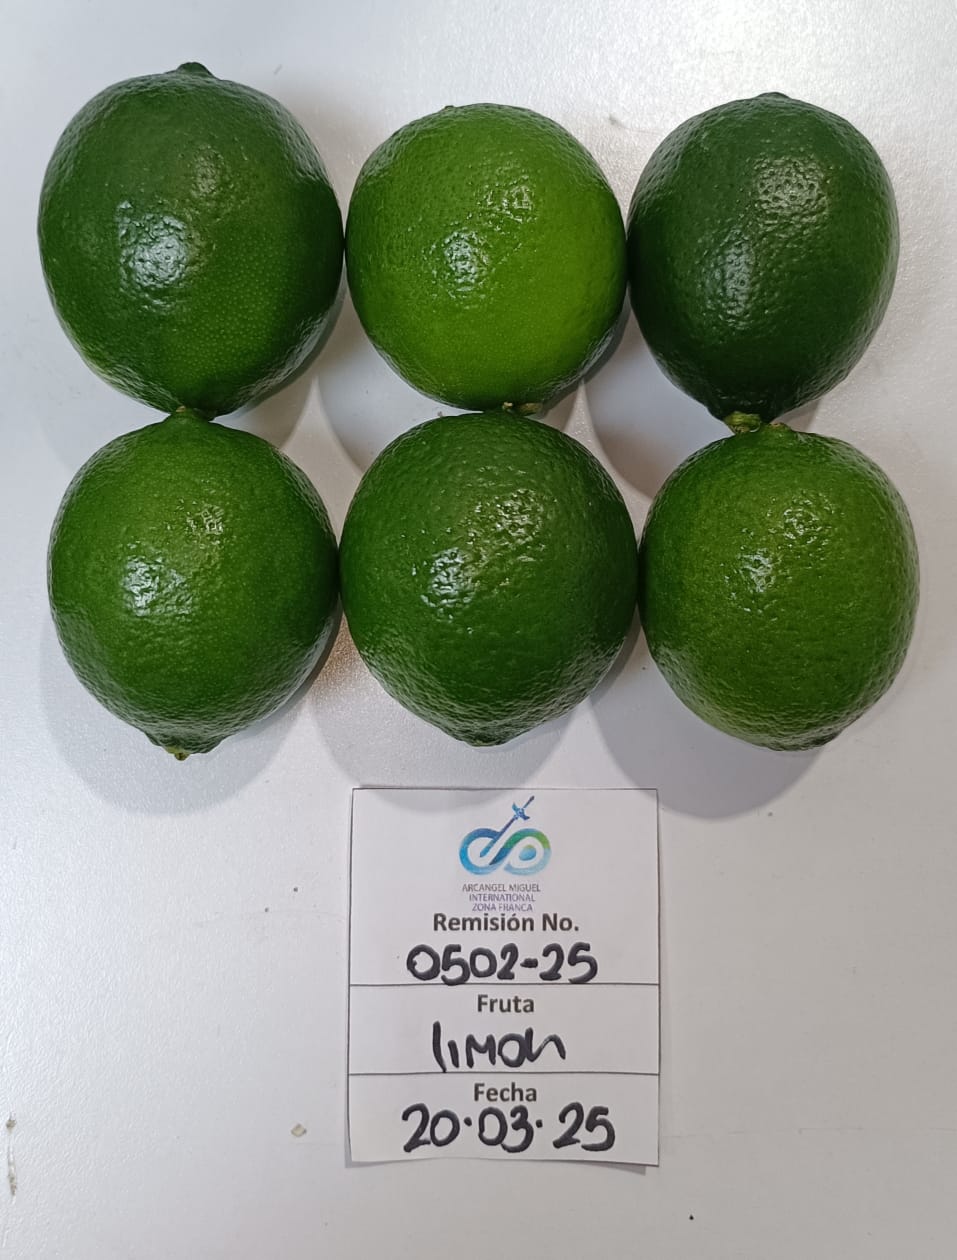 ARCANGEL MIGUEL
INTERNATIONAL
ZONA FRANCA
Remisión No.
0502-25
Fruta
limon
Fecha
20·03·25